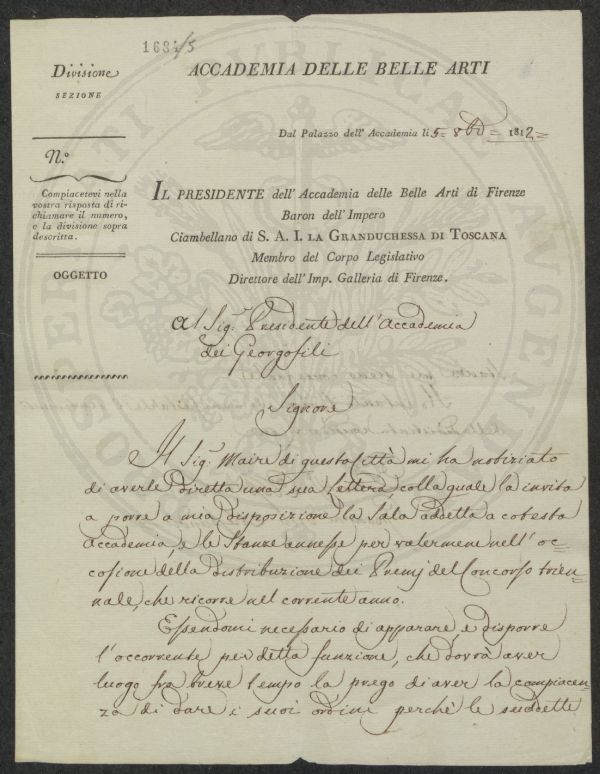 1681/5
Divisione
SEZIONE
N.º
Compiacetevi nella
vostra risposta di ri-
chiamare il numero,
e la divisione sopra
descritta.
OGGETTO
ACCADEMIA DELLE BELLE ARTI
Dal Palazzo dell' Accademia li 5 = 8bre 1812=
IL PRESIDENTE dell'Accademia delle Belle Arti di Firenze
Baron dell'Impero
Ciambellano di S. A. I. LA GRANDUCHESSA DI TOSCANA
Membro del Corpo Legislativo
Direttore dell'Imp. Galleria di Firenze.
Al Sig.r Presidente dell'Accademia
dei Georgofili
Signore
Il Sig.r Maire di questa Città mi ha notiziato
di averle diretta una sua lettera colla quale la invita
a porre a mia disposizione la Sala addetta a cotesta
Accademia, e le Stanze annesse per valermene nell'oc=
casione della Distribuzione dei Premj del Concorso trien=
nale, che ricorre nel corrente anno.
Essendomi necessario di apparare, e disporre
l'occorrente per detta funzione, che dovrà aver
luogo fra breve tempo la prego di aver la compiacen=
za di dare i suoi ordini perchè le suddette